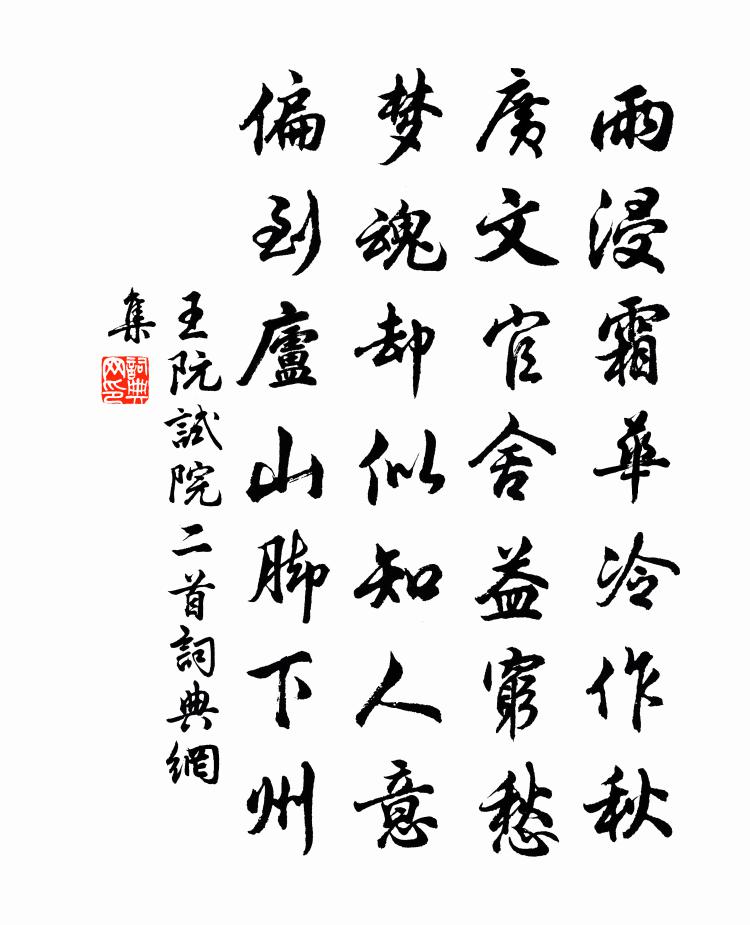 雨浸霜華冷作秋
廣文官舍益窮愁
梦魂却似知人意
偏到廬山脚下州
王阮試院二首詞典網
集
詞典網印